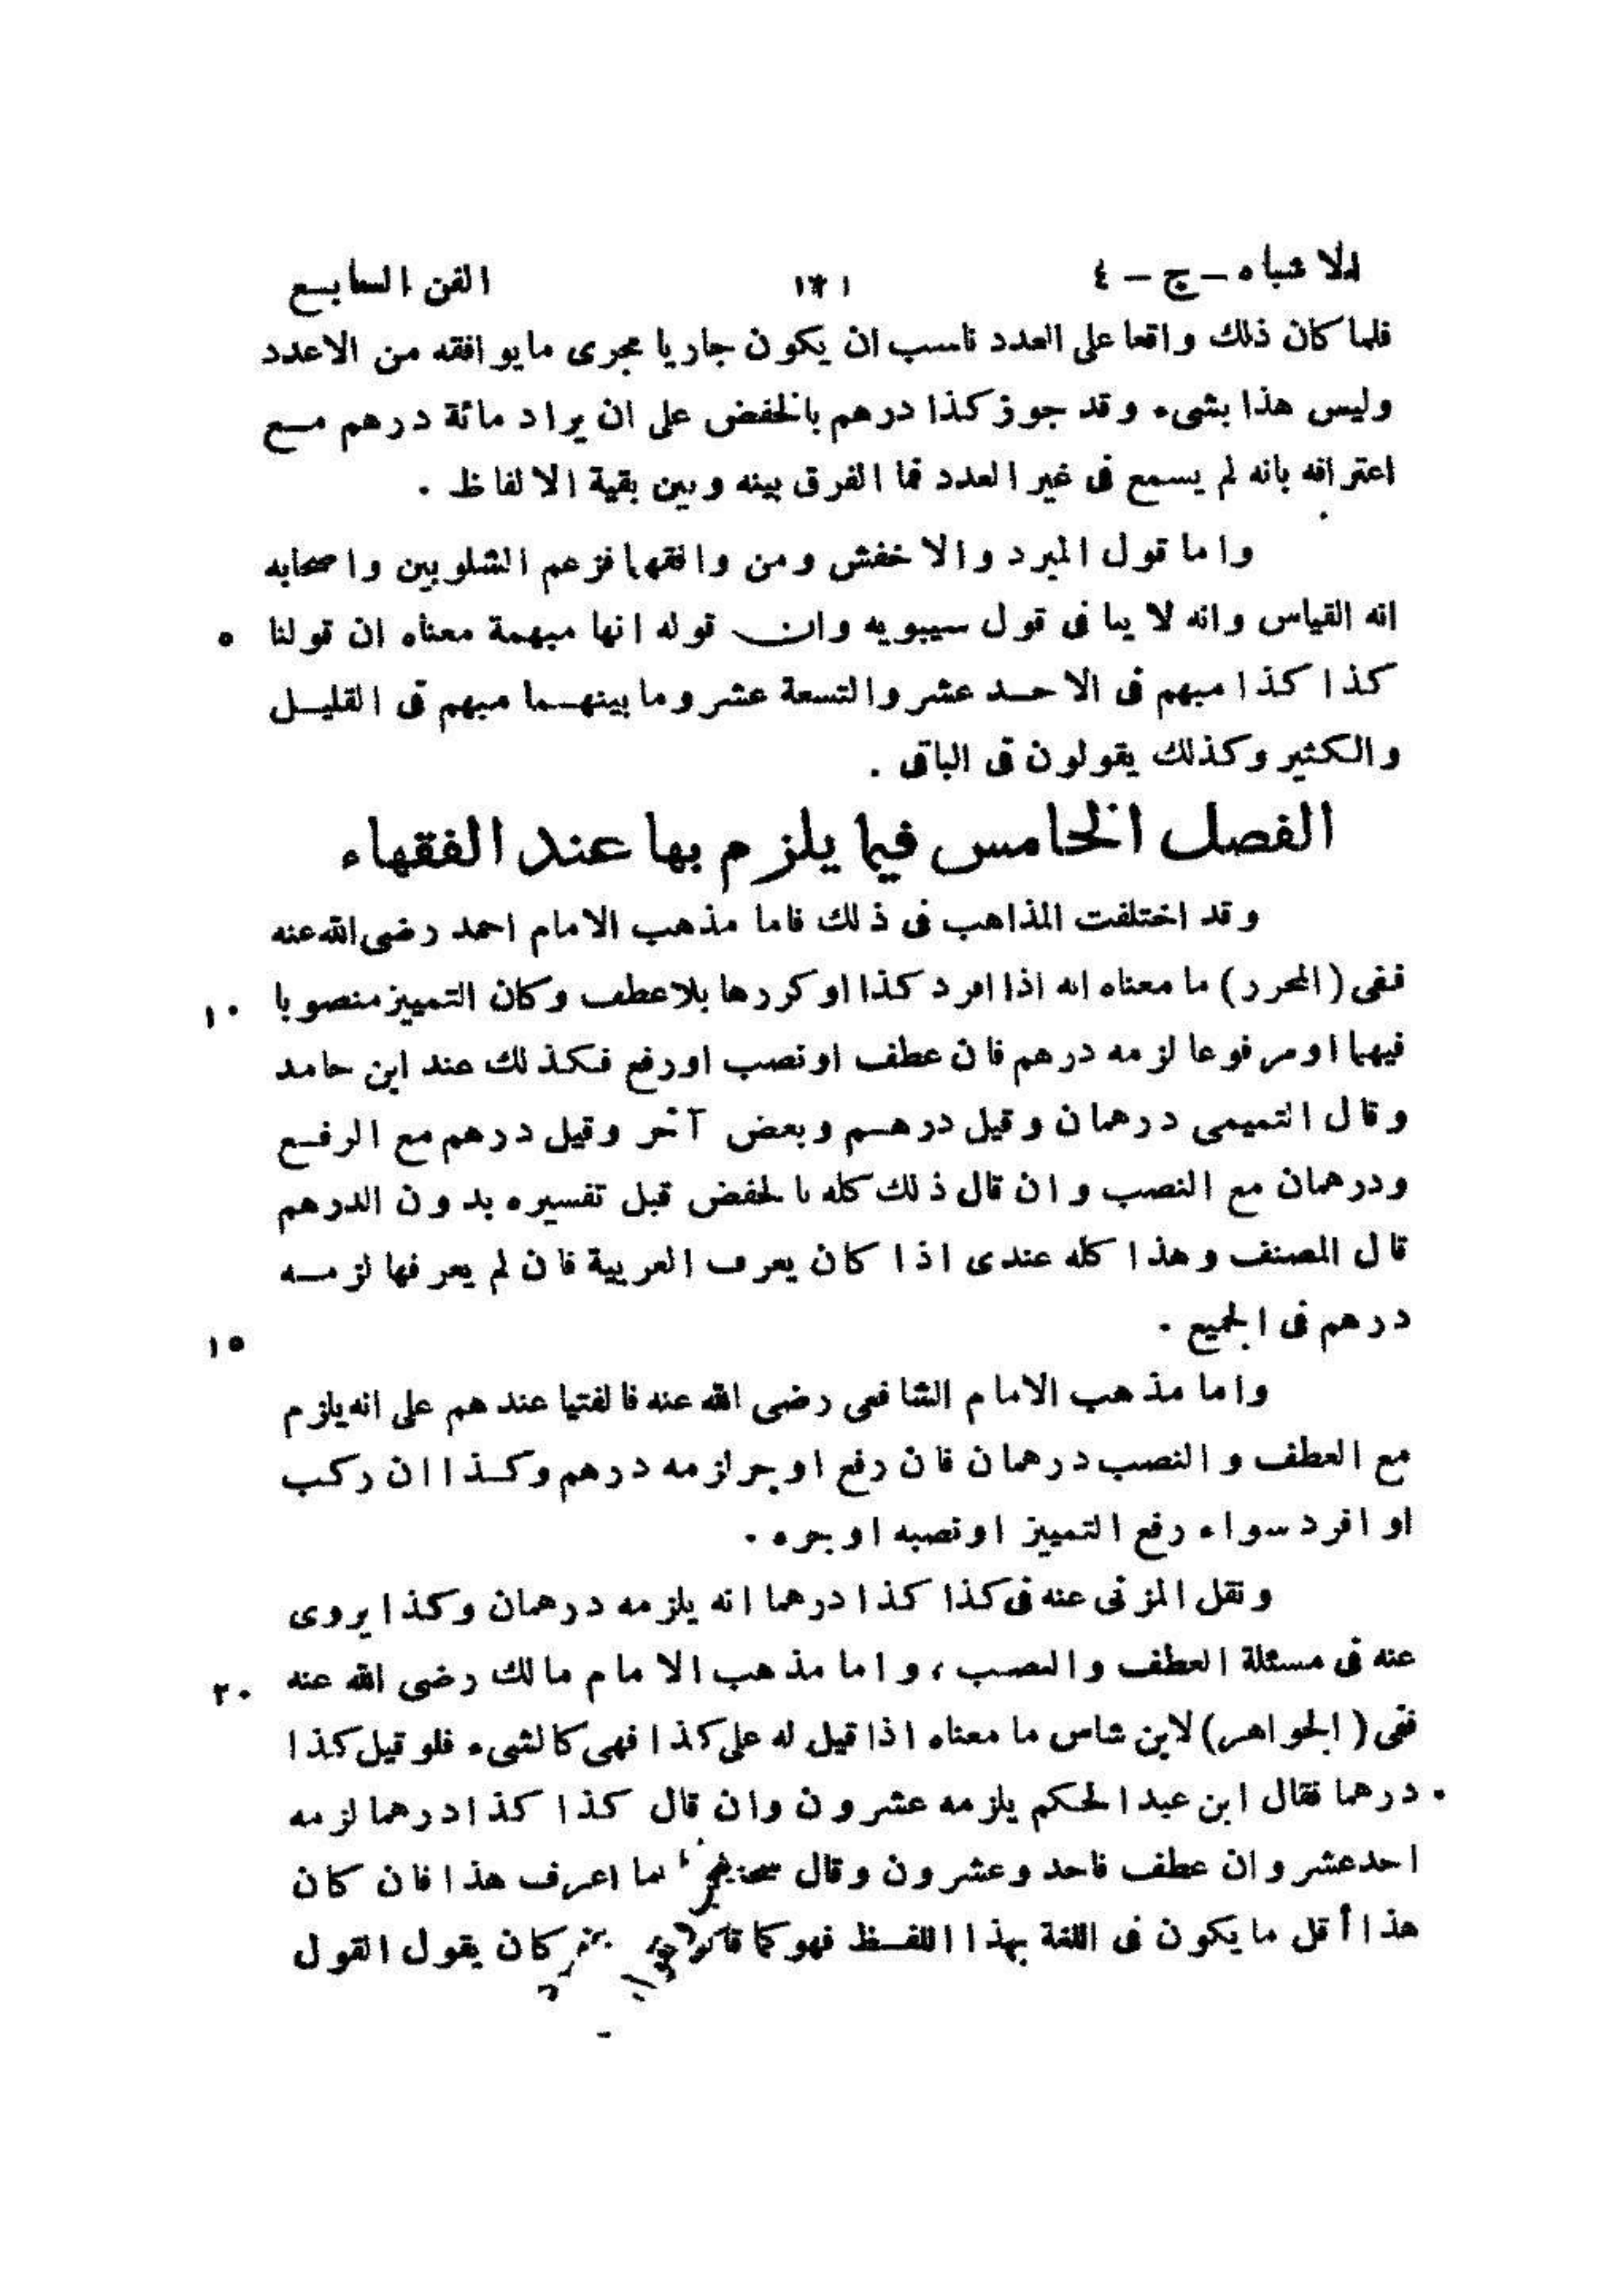 الاشباه – ج – ٤ الفن السابع
فلما كان ذلك واقعا على العدد ناسب ان يكون جاريا مجرى مايوافقه من الاعدد
وليس هذا بشىء وقد جوز كذا درهم بالخفض على ان يراد مائة درهم مع
اعترافه بانه لم يسمع فى غير العدد فما الفرق بينه وبين بقية الالفاظ .
واما قول المبرد والاخفش ومن وافقهما فزعم الشلوبين واصحابه
انه القياس وانه لا يبا فى قول سيبويه وان قوله انها مبهمة معناه ان قولنا ٥
كذا كذا مبهم فى الاحد عشر والتسعة عشر وما بينهما مبهم فى القليل
والكثير وكذلك يقولون فى الباقى .
الفصل الخامس فيما يلزم بها عند الفقهاء
وقد اختلفت المذاهب فى ذلك فاما مذهب الامام احمد رضى الله عنه
ففى (المحرر) ما معناه انه اذا افرد كذا او كررها بلاعطف وكان التمييز منصوبا ١٠
فيهما اومرفوعا لزمه درهم فان عطف اونصب اورفع فكذلك عند ابن حامد
وقال التميمى درهمان وقيل درهم وبعض آخر وقيل درهم مع الرفع
ودرهمان مع النصب وان قال ذلك كله بالخفض قبل تفسيره بدون الدرهم
قال المصنف وهذا كله عندى اذا كان يعرف العربية فان لم يعرفها لزمه
درهم فى الجميع .
١٥
واما مذهب الامام الشافعى رضى الله عنه فالفتيا عندهم على انه يلزم
مع العطف والنصب درهمان فان رفع اوجر لزمه درهم وكذا ان ركب
او افرد سواء رفع التمييز اونصبه اوجره .
ونقل المزنى عنه فى كذا كذا درهما انه يلزمه درهمان وكذا يروى
عنه فى مسئلة العطف والنصب ، واما مذهب الامام مالك رضى الله عنه ٢٠
ففى (الجواهر) لابن شاس ما معناه اذا قيل له على كذا فهى كالشىء فلو قيل كذا
درهما فقال ابن عبد الحكم يلزمه عشرون وان قال كذا كذا درهما لزمه
احدعشر وان عطف فاحد وعشرون وقال ما اعرف هذا فان كان
هذا أقل مايكون فى اللغة بهذا اللفظ فهو كما كان يقول القول